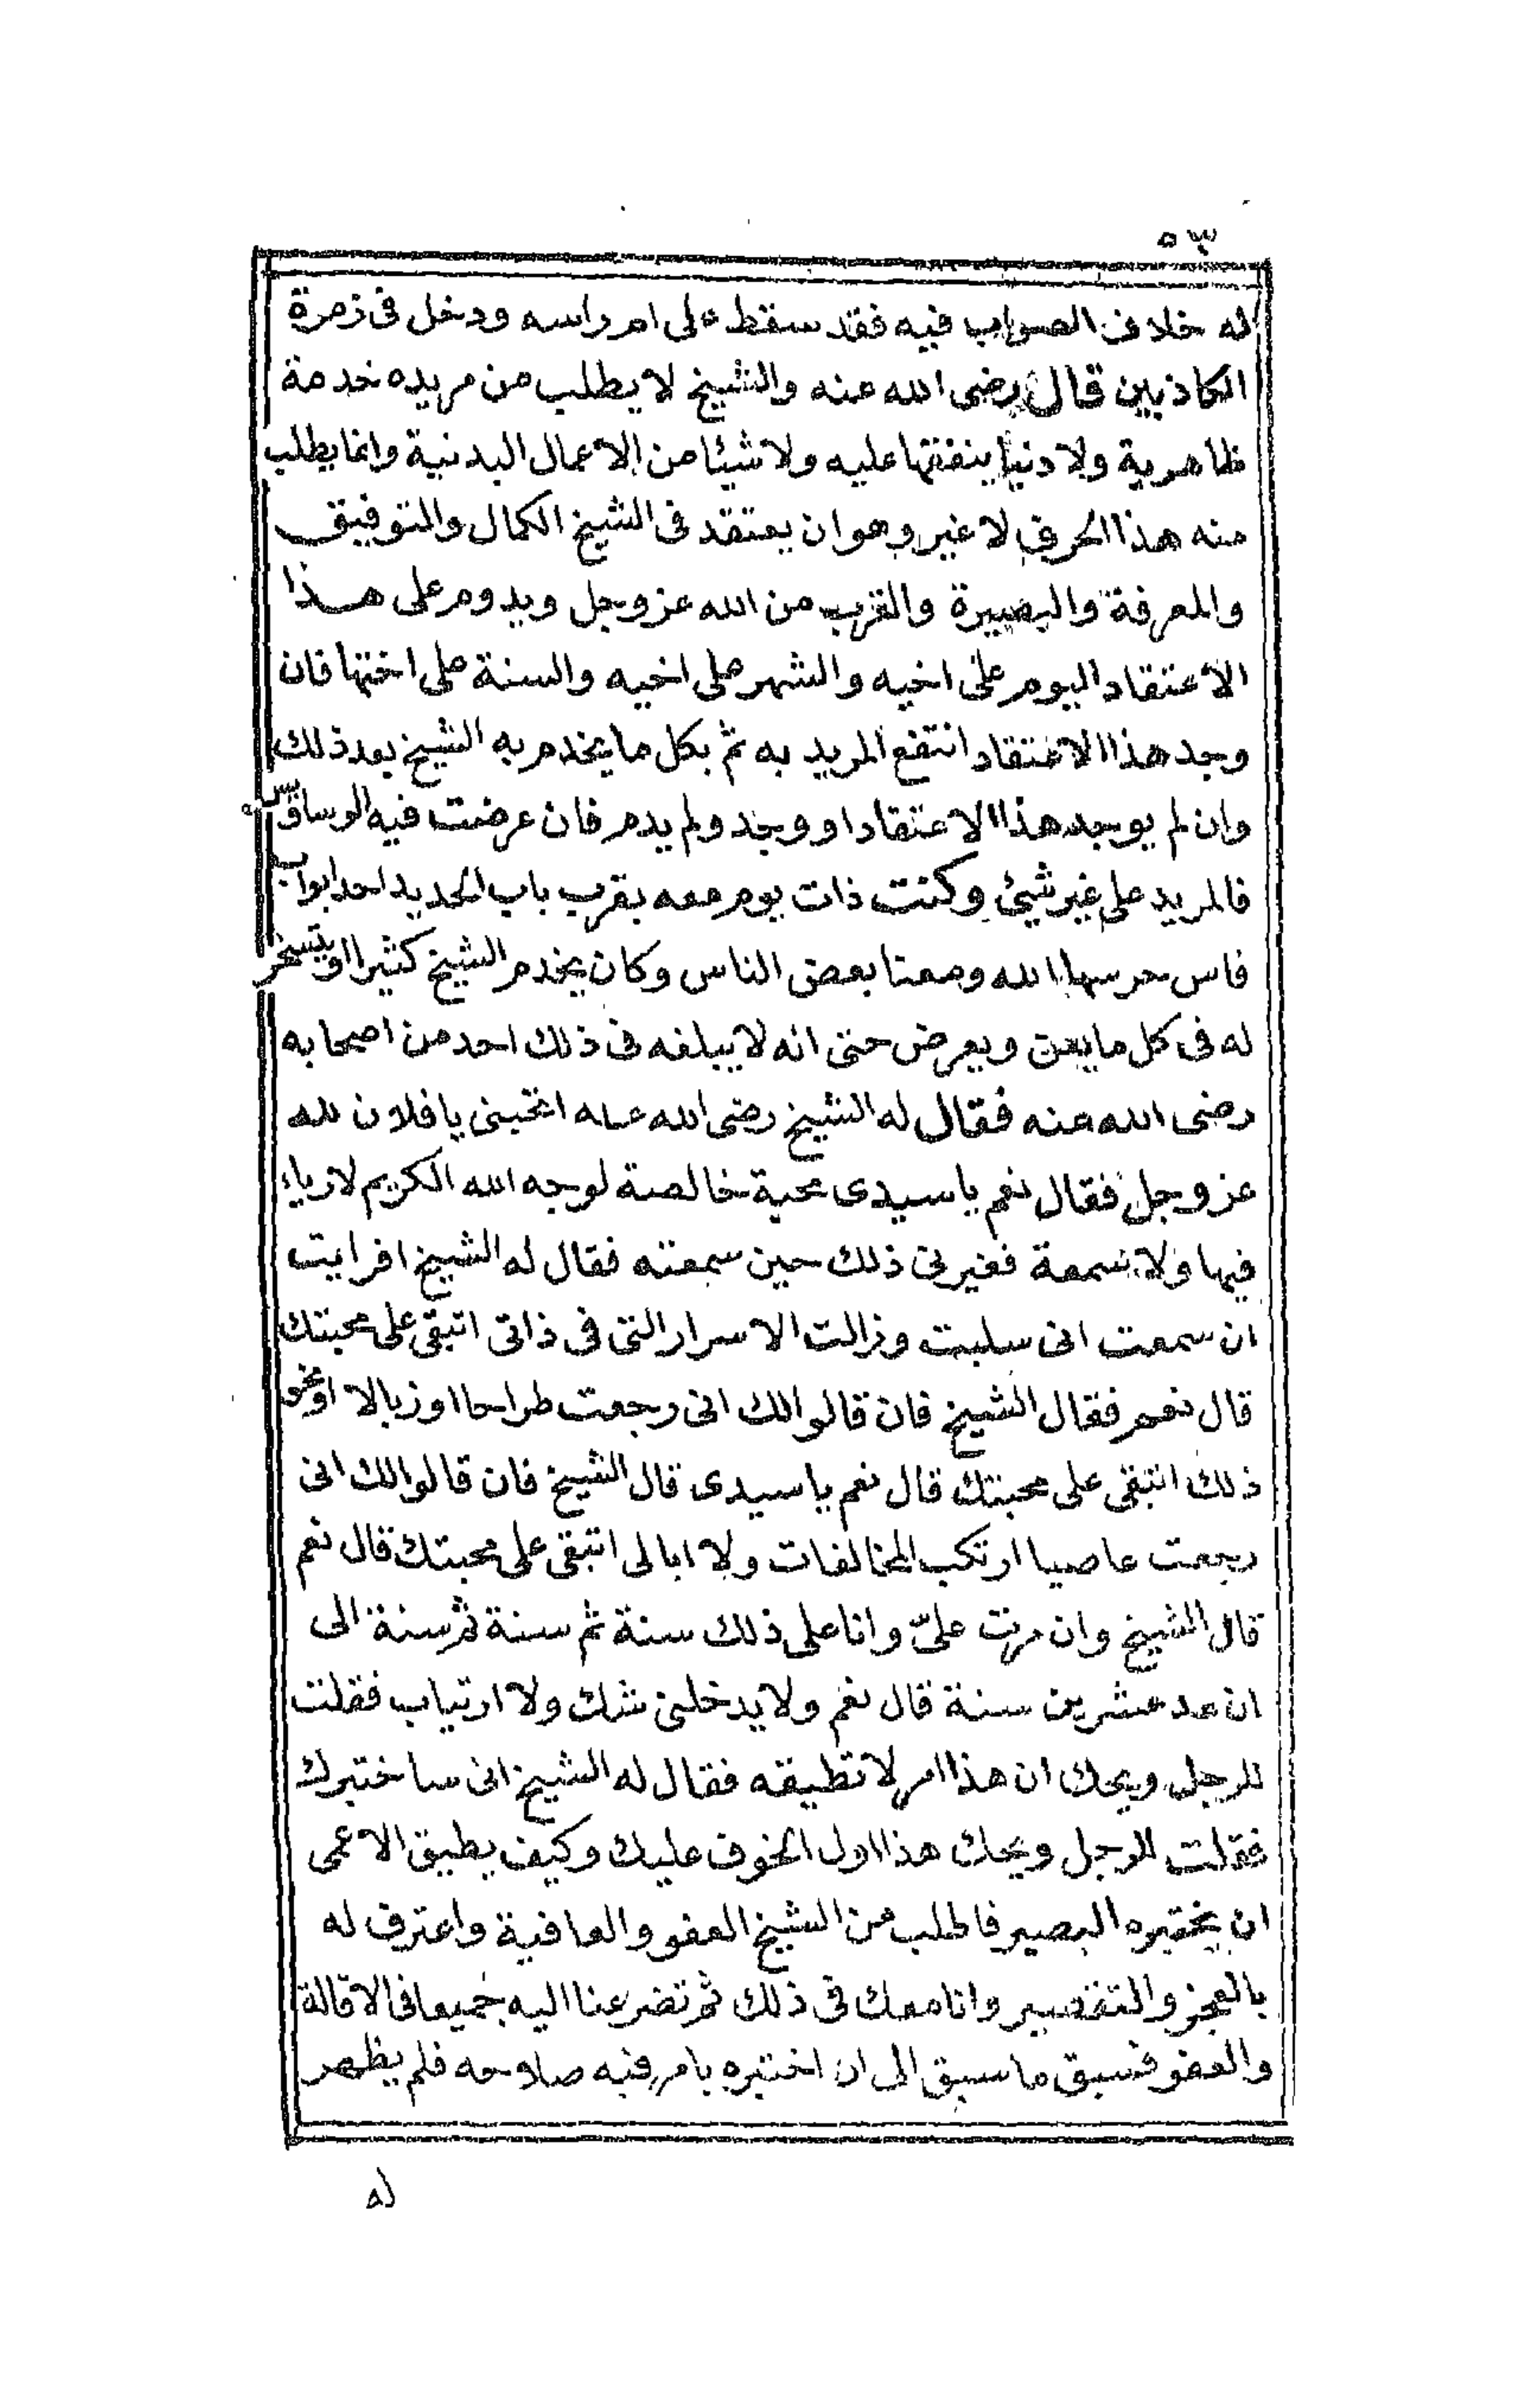 ٥٣
له خلاف الصواب فيه فقد سقط على ام راسه ودخل فى زمرة
الكاذبين قال رضى الله عنه والشيخ لا يطلب من مريده خدمة
ظاهرية ولا دنيا ينفقها عليه ولا شيئا من الاعمال البدنية وانما يطلب
منه هذا الحرف لا غير وهو ان يعتقد فى الشيخ الكمال والتوفيق
والمعرفة والبصيرة والقرب من الله عز وجل ويدوم على هذا
الاعتقاد اليوم على اخيه والشهر على اخيه والسنة على اختها فان
وجد هذا الاعتقاد انتفع المريد به ثم بكل ما يخدم به الشيخ بعد ذلك
وان لم يوجد هذا الاعتقاد او وجد ولم يدم فان عرضت فيه الوساوس
فالمريد على غير شيئ وكنت ذات يوم معه بقرب باب الحديد احد ابواب
فاس حرسها الله ومعنا بعض الناس وكان يخدم الشيخ كثيرا او يتسخر
له فى كل ما يعن ويعرض حتى انه لا يبلغه فى ذلك احد من اصحابه
رضى الله عنه فقال له الشيخ رضى الله عنه اتحبنى يا فلان لله
عز وجل فقال نعم يا سيدى محبة خالصة لوجه الله الكريم لا رياء
فيها ولا سمعة فغيرنى ذلك حين سمعته فقال له الشيخ افرايت
ان سمعت انى سلبت وزالت الاسرار التى فى ذاتى اتبقى على محبتك
قال نعم فقال الشيخ فان قالوا لك انى رجعت طراحا او زبالا او نحو
ذلك اتبقى على محبتك قال نعم يا سيدى قال الشيخ فان قالوا لك انى
رجعت عاصيا ارتكب المخالفات ولا ابالى اتبقى على محبتك قال نعم
قال الشيخ وان مرت علىّ وانا على ذلك سنة ثم سنة ثم سنة الى
ان عد عشرين سنة قال نعم ولا يدخلنى شك ولا ارتياب فقلت
للرجل ويحك ان هذا امر لا تطيقه فقال له الشيخ انى ساختبرك
فقلت للرجل ويحك هذا اول الخوف عليك وكيف يطيق الاعمى
ان يختبره البصير فاطلب من الشيخ العفو والعافية واعترف له
بالعجز والتقصير وانا معك فى ذلك ثم تضرعنا اليه جميعا فى الاقالة
والعفو فسبق ما سبق الى ان اختبره بامر فيه صلاحه فلم يظهر
له